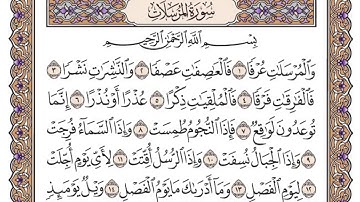 سورة المرسلات
بسم الله الرحمن الرحيم
والمرسلات عرفا ١ فالعصفت عصفا ٢ والنشرت نشرا ٣
فالفرقت فرقا ٤ فالملقيت ذكرا ٥ عذرا أو نذرا ٦ إنما
توعدون لوقع ٧ فإذا النجوم طمست ٨ وإذا السماء فرجت
٩ وإذا الجبال نسفت ١٠ وإذا الرسل أقتت ١١ لأي يوم أجلت
١٢ ليوم الفصل ١٣ وما أدرىك ما يوم الفصل ١٤ ويل يومئذ